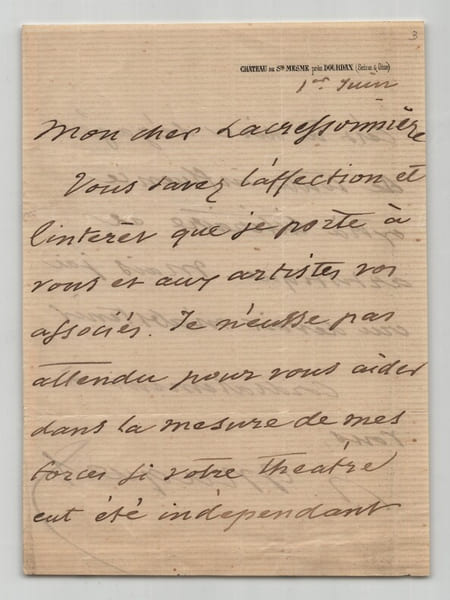 3
CHÂTEAU DE Ste MESME près DOURDAN (Seine & Oise)
1er Juin
Mon cher Lacressonnière
Vous savez l'affection et
l'interet que je porte à
vous et aux artistes vos
associés. Je n'eusse pas
attendu pour vous aider
dans la mesure de mes
forces si votre theatre
eut été indépendant